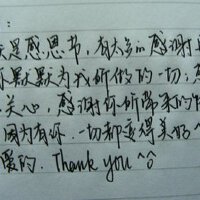 是感恩节,有太多的感谢
你默默为我所做的一切;
关心,感谢你所带来的
因为有你,一切都变得美好~
爱的. Thank you ^o^